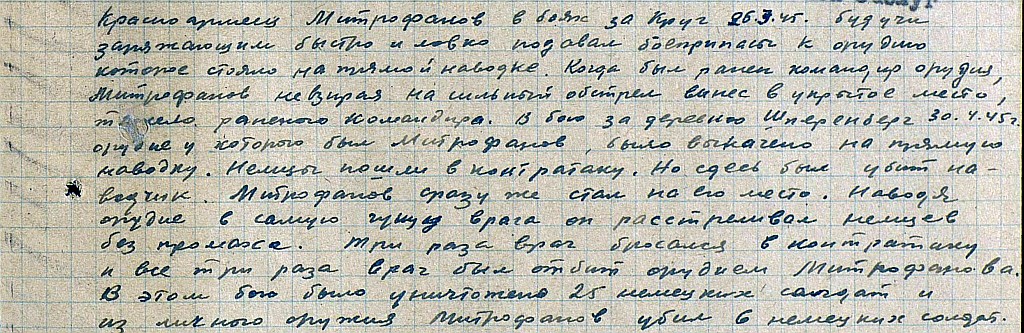 Красноармеец Митрофанов в боях за Круг 26.3.45. будучи
заряжающим быстро и ловко подавал боеприпасы к орудию
которое стояло на прямой наводке. Когда был ранен командир орудия,
Митрофанов невзирая на сильный обстрел вынес в укрытое место,
тяжело раненого командира. В бою за деревною Шперенберг 30.4.45г.
орудие у которого был Митрофанов, было выкачено на прямую
наводку. Немцы пошли в контратаку. Но здесь был убит на-
водчик. Митрофанов сразу же стал на его место. Наводя
орудие в самую гущу врага он расстреливал немцев
без промаха. Три раза враг бросался в контратаку
и все три раза враг был отбит орудием Митрофанова.
В этом бою было уничтожено 25 немецких солдат и
из личного оружия Митрофанов убил 8 немецких солдат.